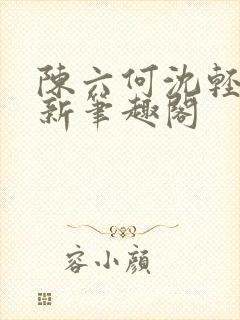 陳六何沈輕
新筆趣閣
容小顏